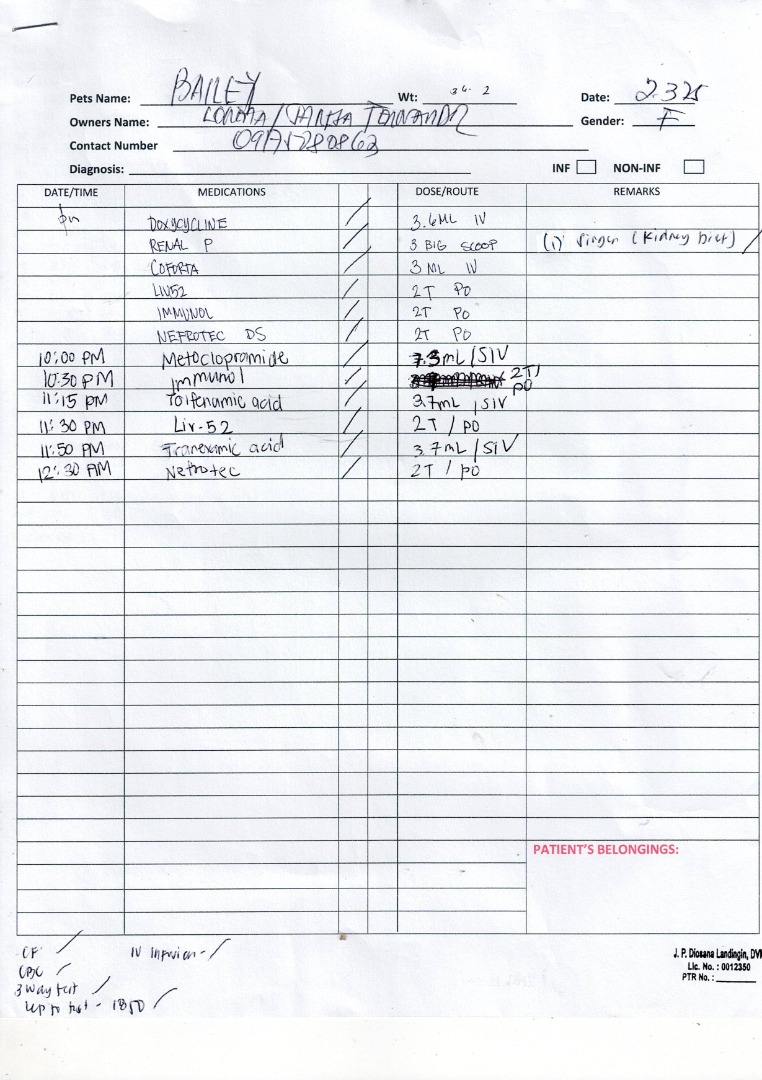 Pets Name: BAILEY Wt: 36.2 Date: 2.3.25
Owners Name: Gender: F
Contact Number
Diagnosis: INF NON-INF
DATE/TIME MEDICATIONS DOSE/ROUTE REMARKS
pm DOXYCYCLINE / 3.6ML IV
RENAL P / 3 BIG SCOOP (1) (Kidney Diet) /
COFORTA / 3 ML IV
LIV52 / 2T PO
IMMUNOL / 2T PO
NEFROTEC DS / 2T PO
10:00 PM Metoclopramide / 7.3mL / SIV
10:30 PM Immunol / 2T / PO
11:15 PM Tolfenamic acid / 3.7mL / SIV
11:30 PM Liv-52 / 2T / PO
11:50 PM Tranexamic acid / 3.7mL / SIV
12:30 AM Nefrotec / 2T / PO
PATIENT'S BELONGINGS:
CF / IV Infusion - /
CBC /
3 way test /
- 1850 /
J. P. Diosana Landingin, DVM
Lic. No. : 0012350
PTR No. :